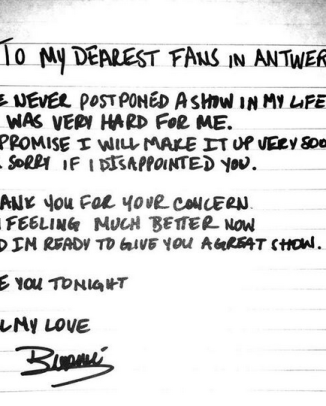 TO MY DEAREST FANS IN ANTWER
E NEVER POSTPONED A SHOW IN MY LIFE
WAS VERY HARD FOR ME.
PROMISE I WILL MAKE IT UP VERY SOO
SORRY IF I DISAPPOINTED YOU.
ANK YOU FOR YOUR CONCERN.
FEELING MUCH BETTER NOW
D IM READY TO GIVE YOU A GREAT SHOW.
E YOU TONIGHT
L MY LOVE